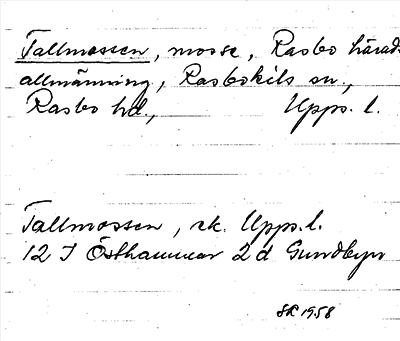 Tallmossen, mosse, Rasbo härads-
allmänning, Rasbokils sn.,
Rasbo hd., Upps. l.
Tallmossen, ek. Upps. l.
12 I Östhammar 2 d Gundbyn
SR 1958